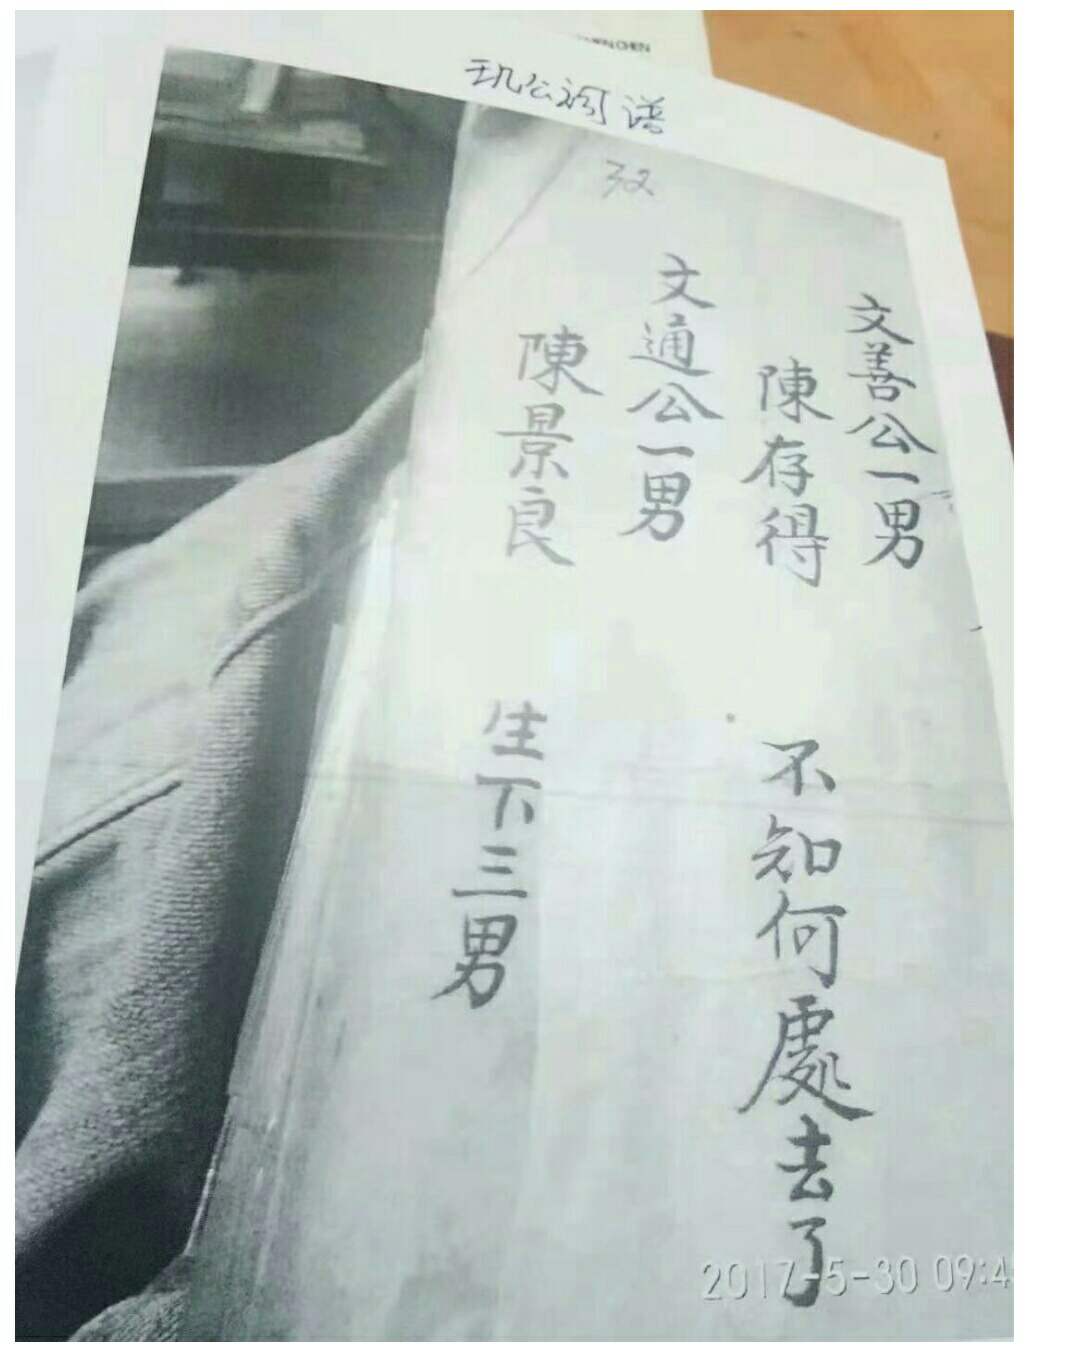 玑公祠谱
32
文善公一男
陳存得
不知何處去了
文通公一男
陳景良
生下三男
2017-5-30 09:4